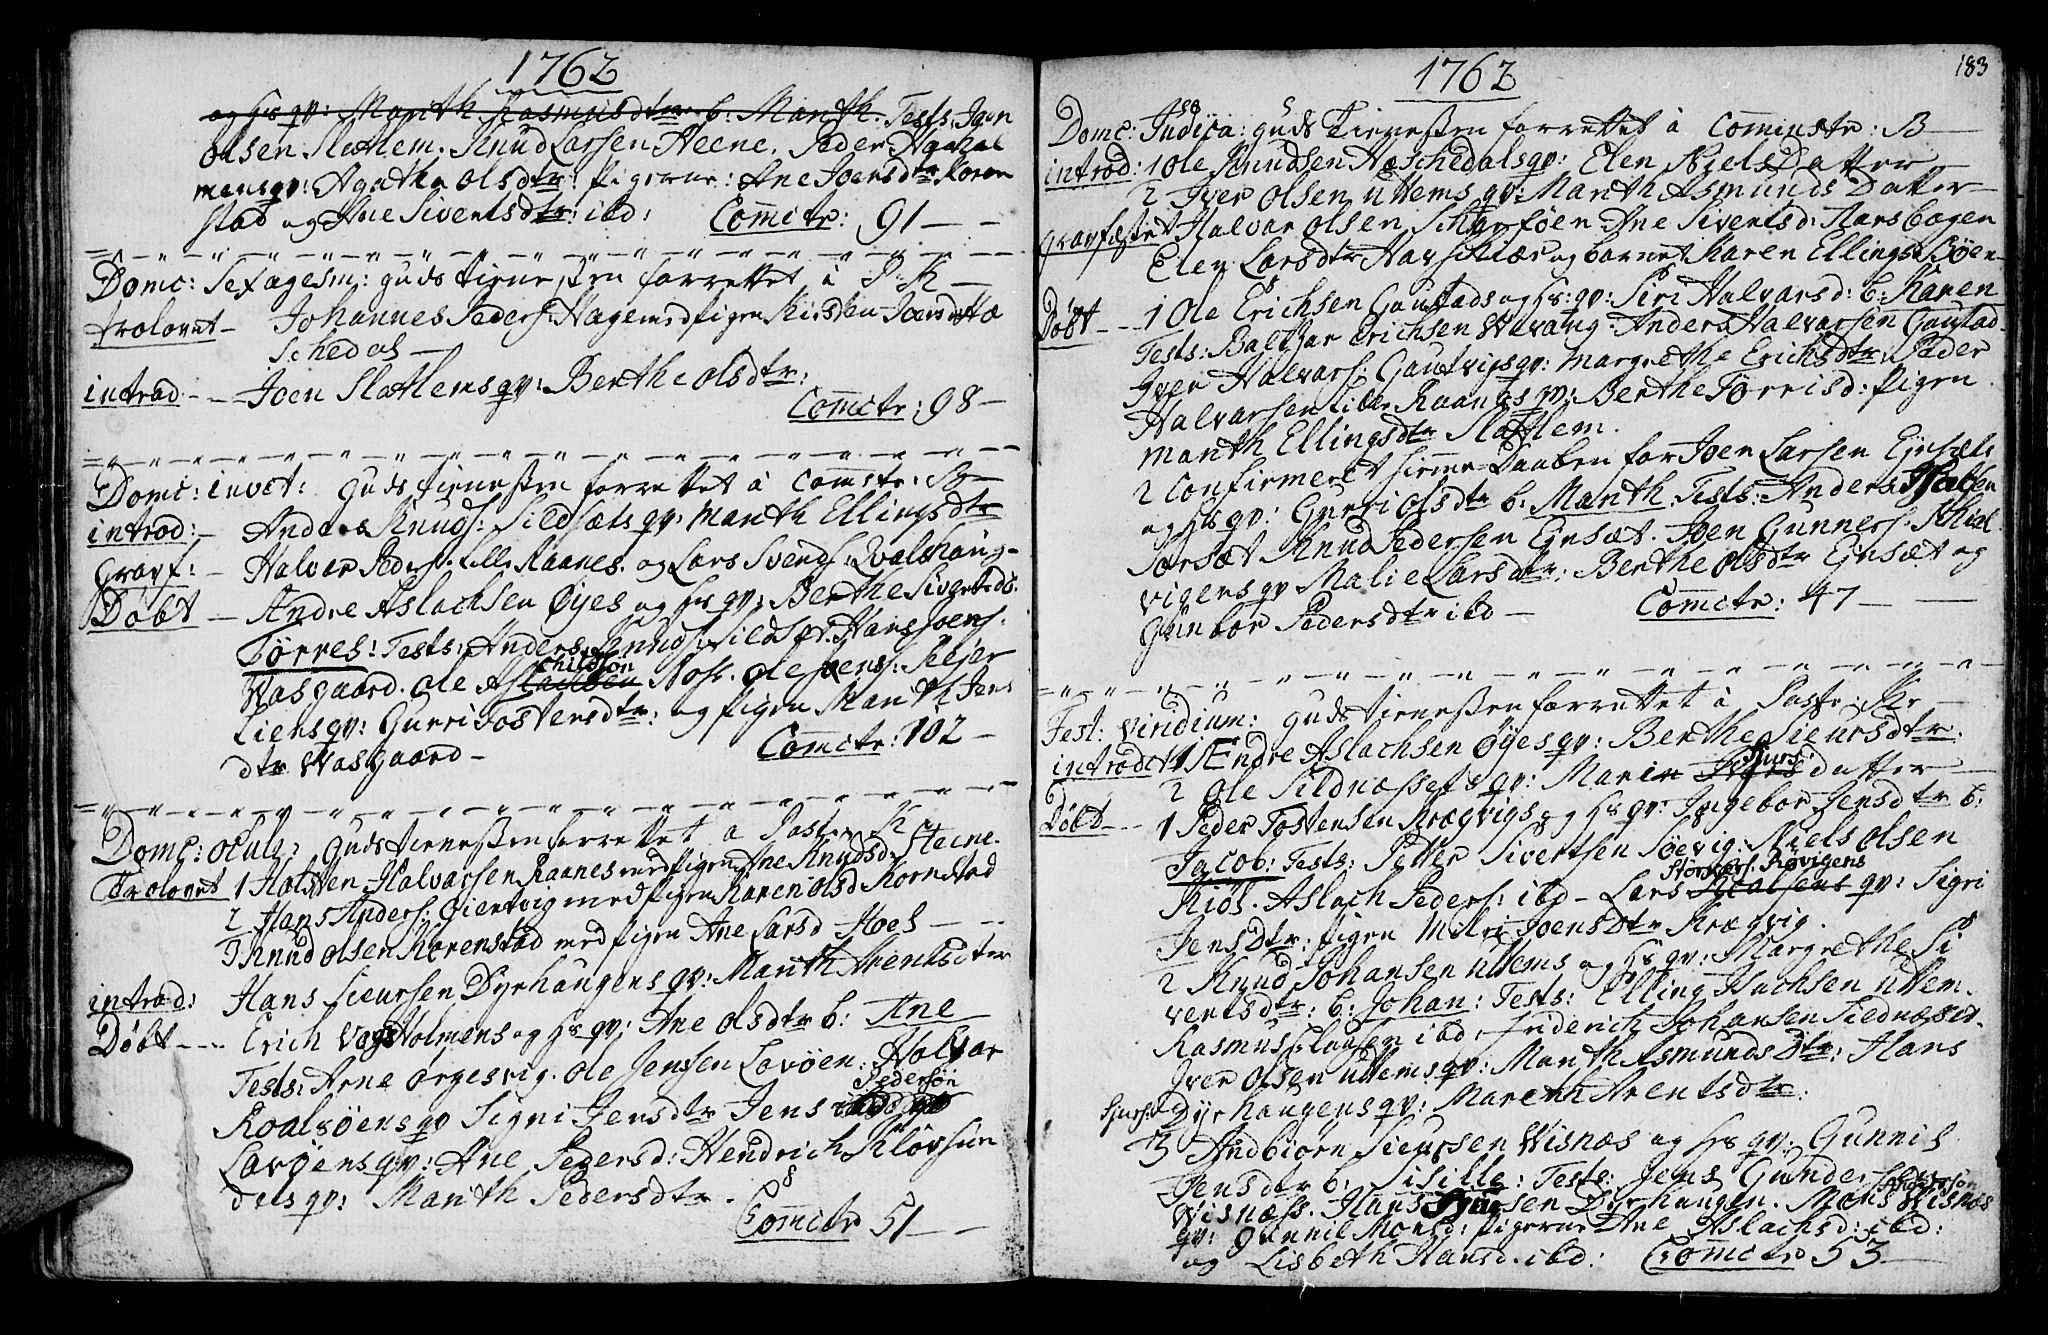 1762
og hs qv: Marith Rasmusdtr b: Marith. Tests: Joen
olsen Slatlem. Knud Larsen Heene. Peder
mensqv: Agathe olsdtr: Pigerne: Ane Joensdtr Koren
stad og Ane Sivertsdtr: ibd: Comctr: 91
Domc: Sexagesm: guds tienesten forrettet i P: K
trolovet Johannes Peders: Hagem med pigen Kirsten Joensd Hæ
schedal
introd: Joen Slatlems qv: Berthe olsdtr:
Comctr: 98
Domc: invoc: guds tienesten forrettet å Comstr: B
introd: Anders Knuds: Sildsæts qv: Marith Ellingsdtr
Gravf: Halvor Peders: lille Raanes. og Lars Svends: Qvalshaug
Døbt Andre Aslachsen Øyes og hs qv: Berthe Sivertsd b:
Tørres: Tests: Anders Knuds: Sildset. Hans Joens:
Wasgaard. ole Aslachsen Nos. ole Joens: Seljer
Liens qv: Gurri Tostensdtr: og pigen Marith Jens
dtr Wasgaard Comctr: 102
Domc: oculi: guds tienesten forrettet a Past: K
Trolovet 1 Halsten Halvarsen Raanes med pigen Ane Knudsd Heine.
2 Hans Anders: Giertvig med pigen Karen olsd Kornstad
3 Knud olsen Korenstad med pigen Ane Larsd Hoes
introd: Hans Siursen Dyrhaugens qv: Marith Arentsdter
Døbt Erich Vågsholmens og hs qv: Ane olsdtr b: Ane
Tests: Arne Orgesvig. ole Jensen Lovøen: Halvar
Pedersøn
Roalsøens qv Sigri Jensdtr Jens
Lovøens qv: Ane Pedersd: Hendrich Kløvsun
dets qv: Marith Pedersdtr.
Comctr 51
1762
183
Domc: Judica: guds Tienesten forrettet å Cominstr: B
introd: 1 ole Knudsen Hæschedals qv: Elen Niels Datter
2 Iver olsen uttems qv: Marith Asmunds Datter
gravfæstet Halvar olsen Ane Sivertsd:
Elen Larsdtr og barnet Karen Ellingsd Søen
Døbt 1 Ole Erichsen Gaustads og hs: qv: Siri Halvarsd: b: Karen
Tests: Baltzar Erichsen Wevang: Anders Halvarsen Gaustad
Iver Halvars: Gautvigs qv: Margrethe Erichsdtr: Peder
Halvarsen lille Raanes qv: Berthe Tørrisd: Pigen
Marith Ellingsdtr Slatlem.
2 Confirmeret hiemme Daaben for Joen Larsen Ejesæt
og hs qv: Gurri olsdtr b: Marith. Tests: Anders
Torsæt Knud Pedersen Ejnsæt. Joen Gunners:
vigens qv Malie Larsdtr: Berthe olsdtr Ejnsæt og
Gunbor Pedersdtr ibd Comctr: 47
Fest: Viridium: guds tienesten forrettet å Pastr: K
introdct 1 Endre Aslachsen Øyes qv: Berthe Siursdtr.
2 ole Sildnessets qv: Marit Siurs datter
Døbt 1 Peder Tostensen Krægvigs og hs qv: Ingebor Jensdtr b:
Jacob: Tests: Petter Sivertsen Søevig: Niels olsen
Størchers: Røvigens
Riøs. Aslach Peders: ibd Lars qv: Sigri
Jens Dtr: pigen Mari Joensdtr Krægvig.
2 Knud Johansen uttems og hs qv: Margrethe Si
vertsdtr: b: Johan: Tests: Elling Isachsen uttem.
Rasmus Clausen ibd. Friderich Johansen Sildnæset.
Iver olsen uttems qv: Marith Asmunds Dtr: Hans
Siurs: Dyrhaugens qv: Mareth Arentsdtr:
3 Andbiørn Siursen Wisnæs og hs qv: Gunnil
Jensdtr b: Sisille: Tests: Jens Gunders:
Anderssøn
Wisnæss. Hans Siursen Dyrhaugen. Mons Wisnæs
qv: Gunnil Monsd: Pigerne Ane Aslachsd: ibd:
og Lisbeth Hansd. ibd: Comctr 53